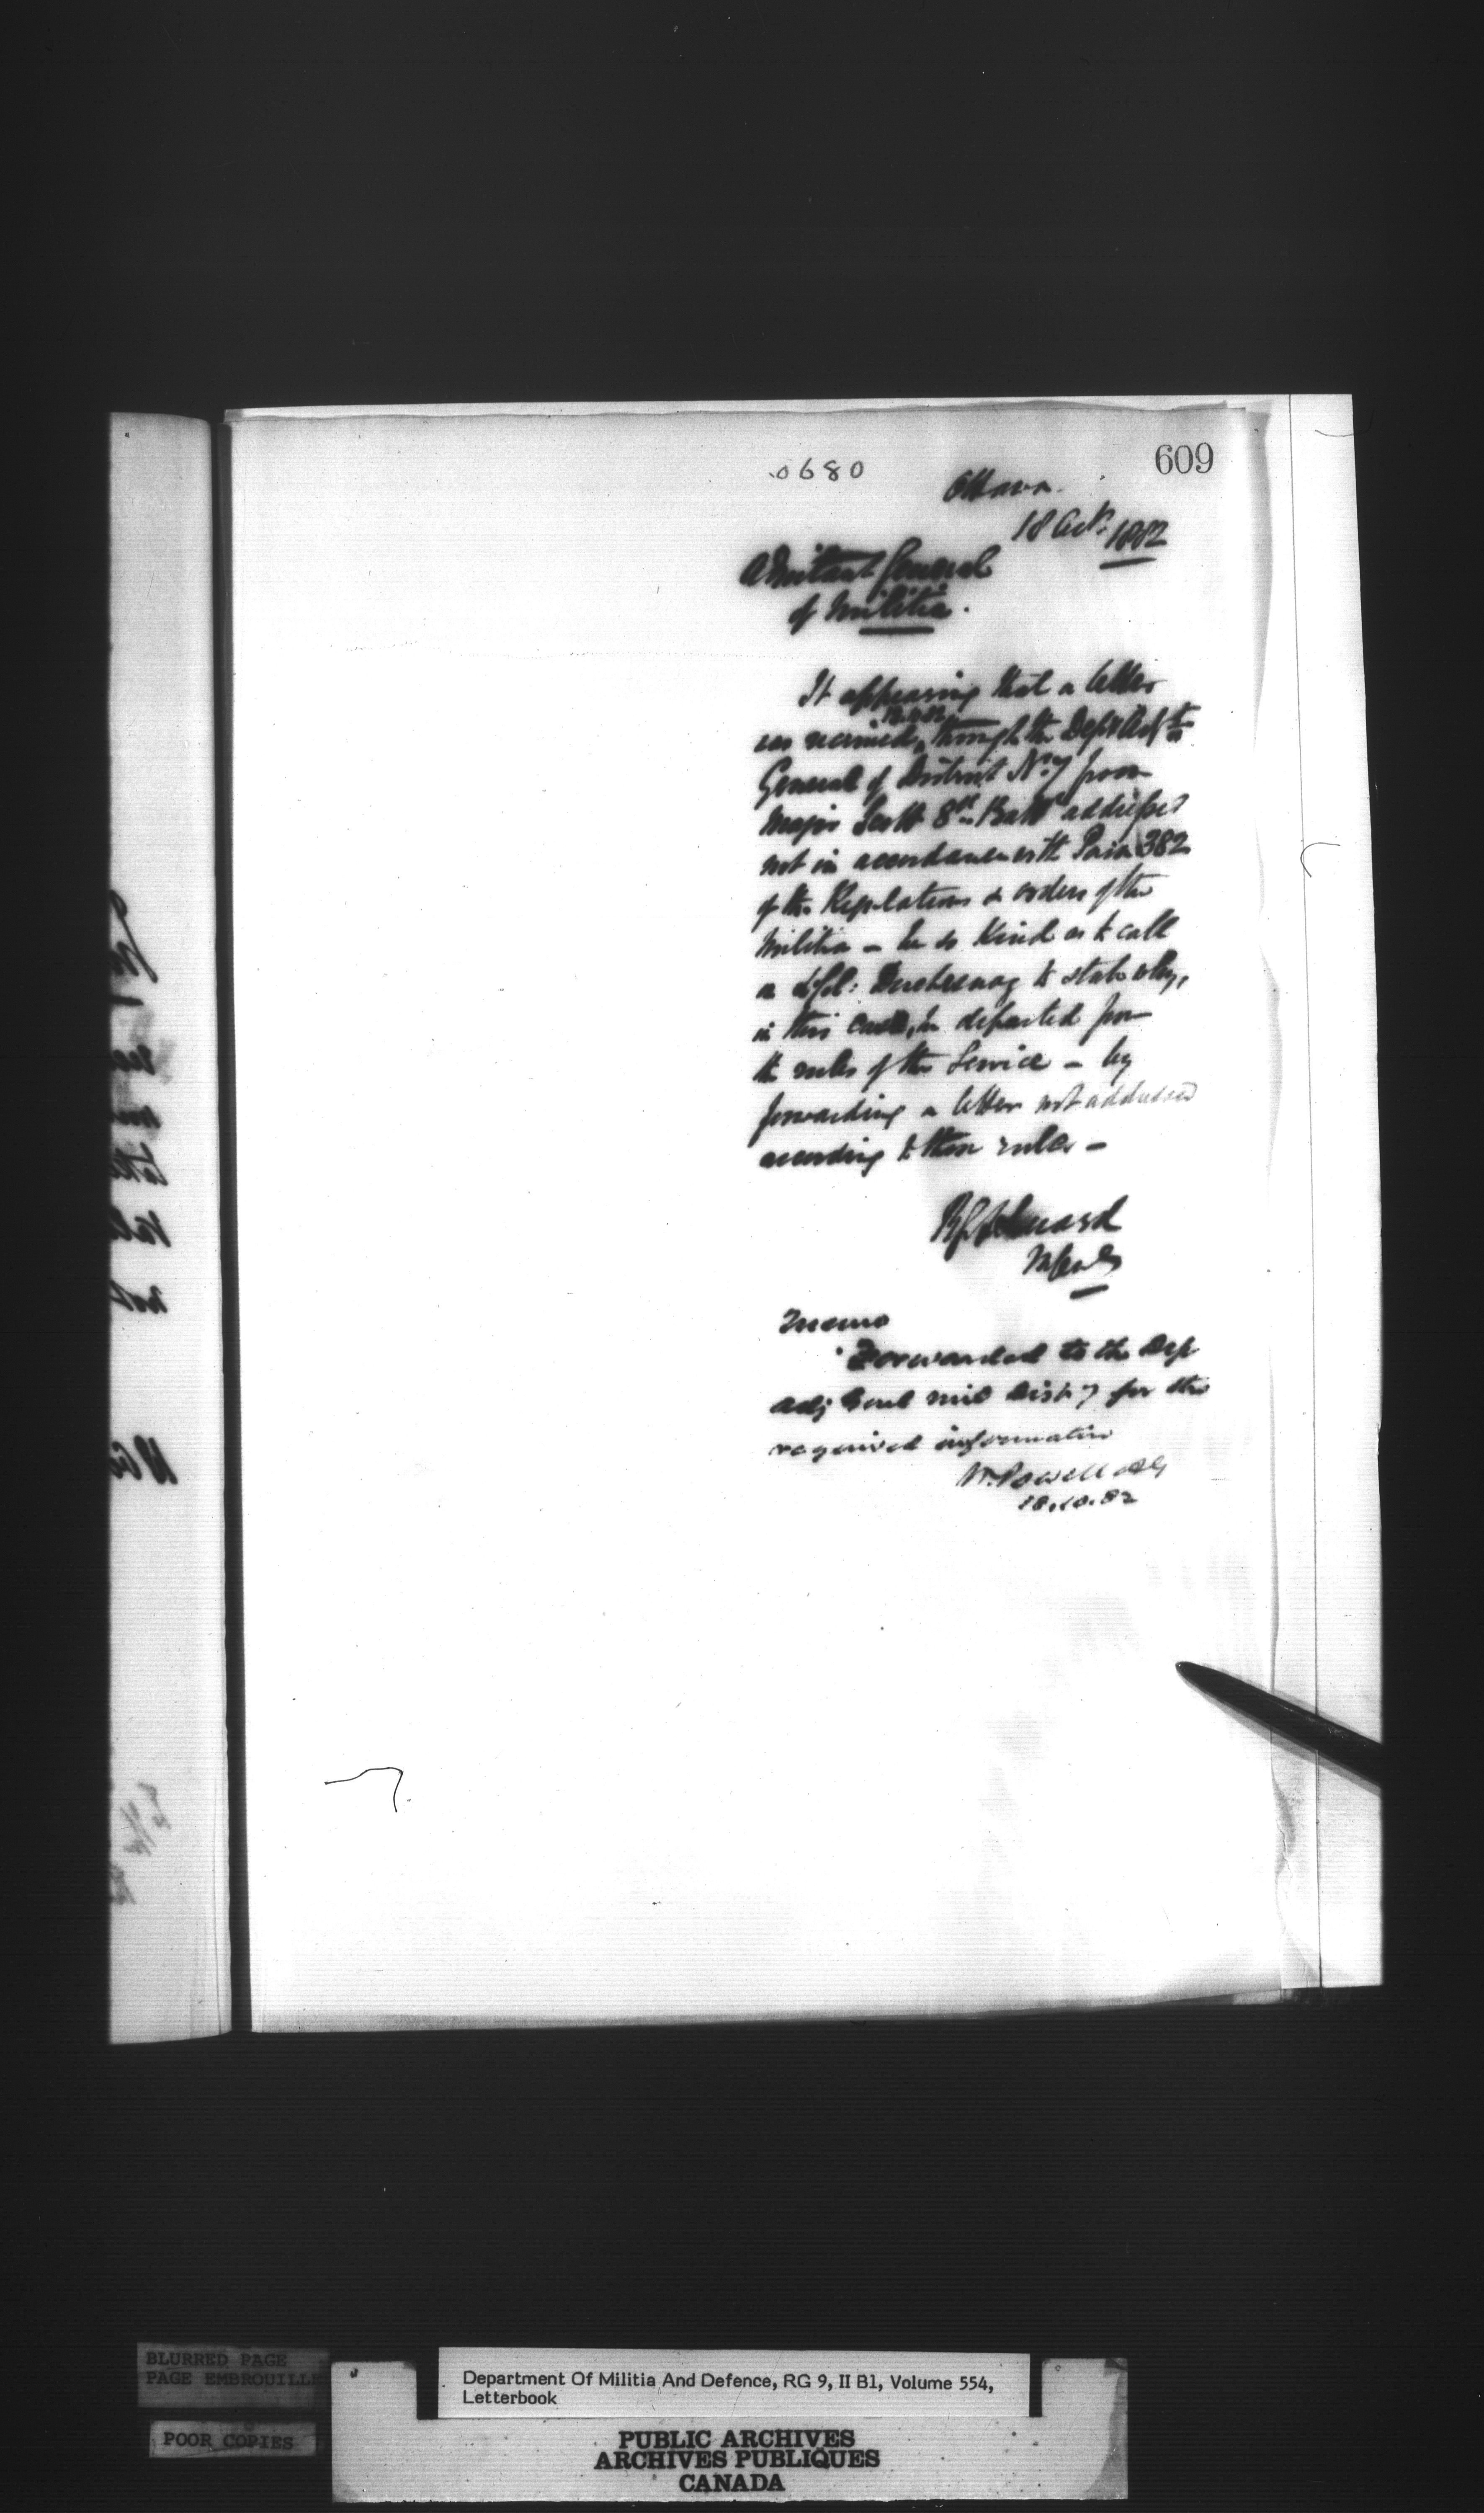 609
0680
Ottawa
18 Oct. 1882
Adjutant General
of Militia.
It appearing that a letter
was received, through the Dept Adjt
General of District No. 7 from
Major Scott 8th Batt addressed
not in accordance with Para 382
of the Regulations & orders of the
Militia - be so kind as to call
on Lt Col: to state why,
in this case, he departed from
the rules of the Service - by
forwarding a letter not addressed
according to those rules -
Memo
Forwarded to the Dep
Adj Genl Mil Dist 7 for the
required information
W. Powell AG
18.10.82
BLURRED PAGE
PAGE EMBROUILLE
POOR COPIES
Department Of Militia And Defence, RG 9, II B1, Volume 554,
Letterbook
PUBLIC ARCHIVES
ARCHIVES PUBLIQUES
CANADA